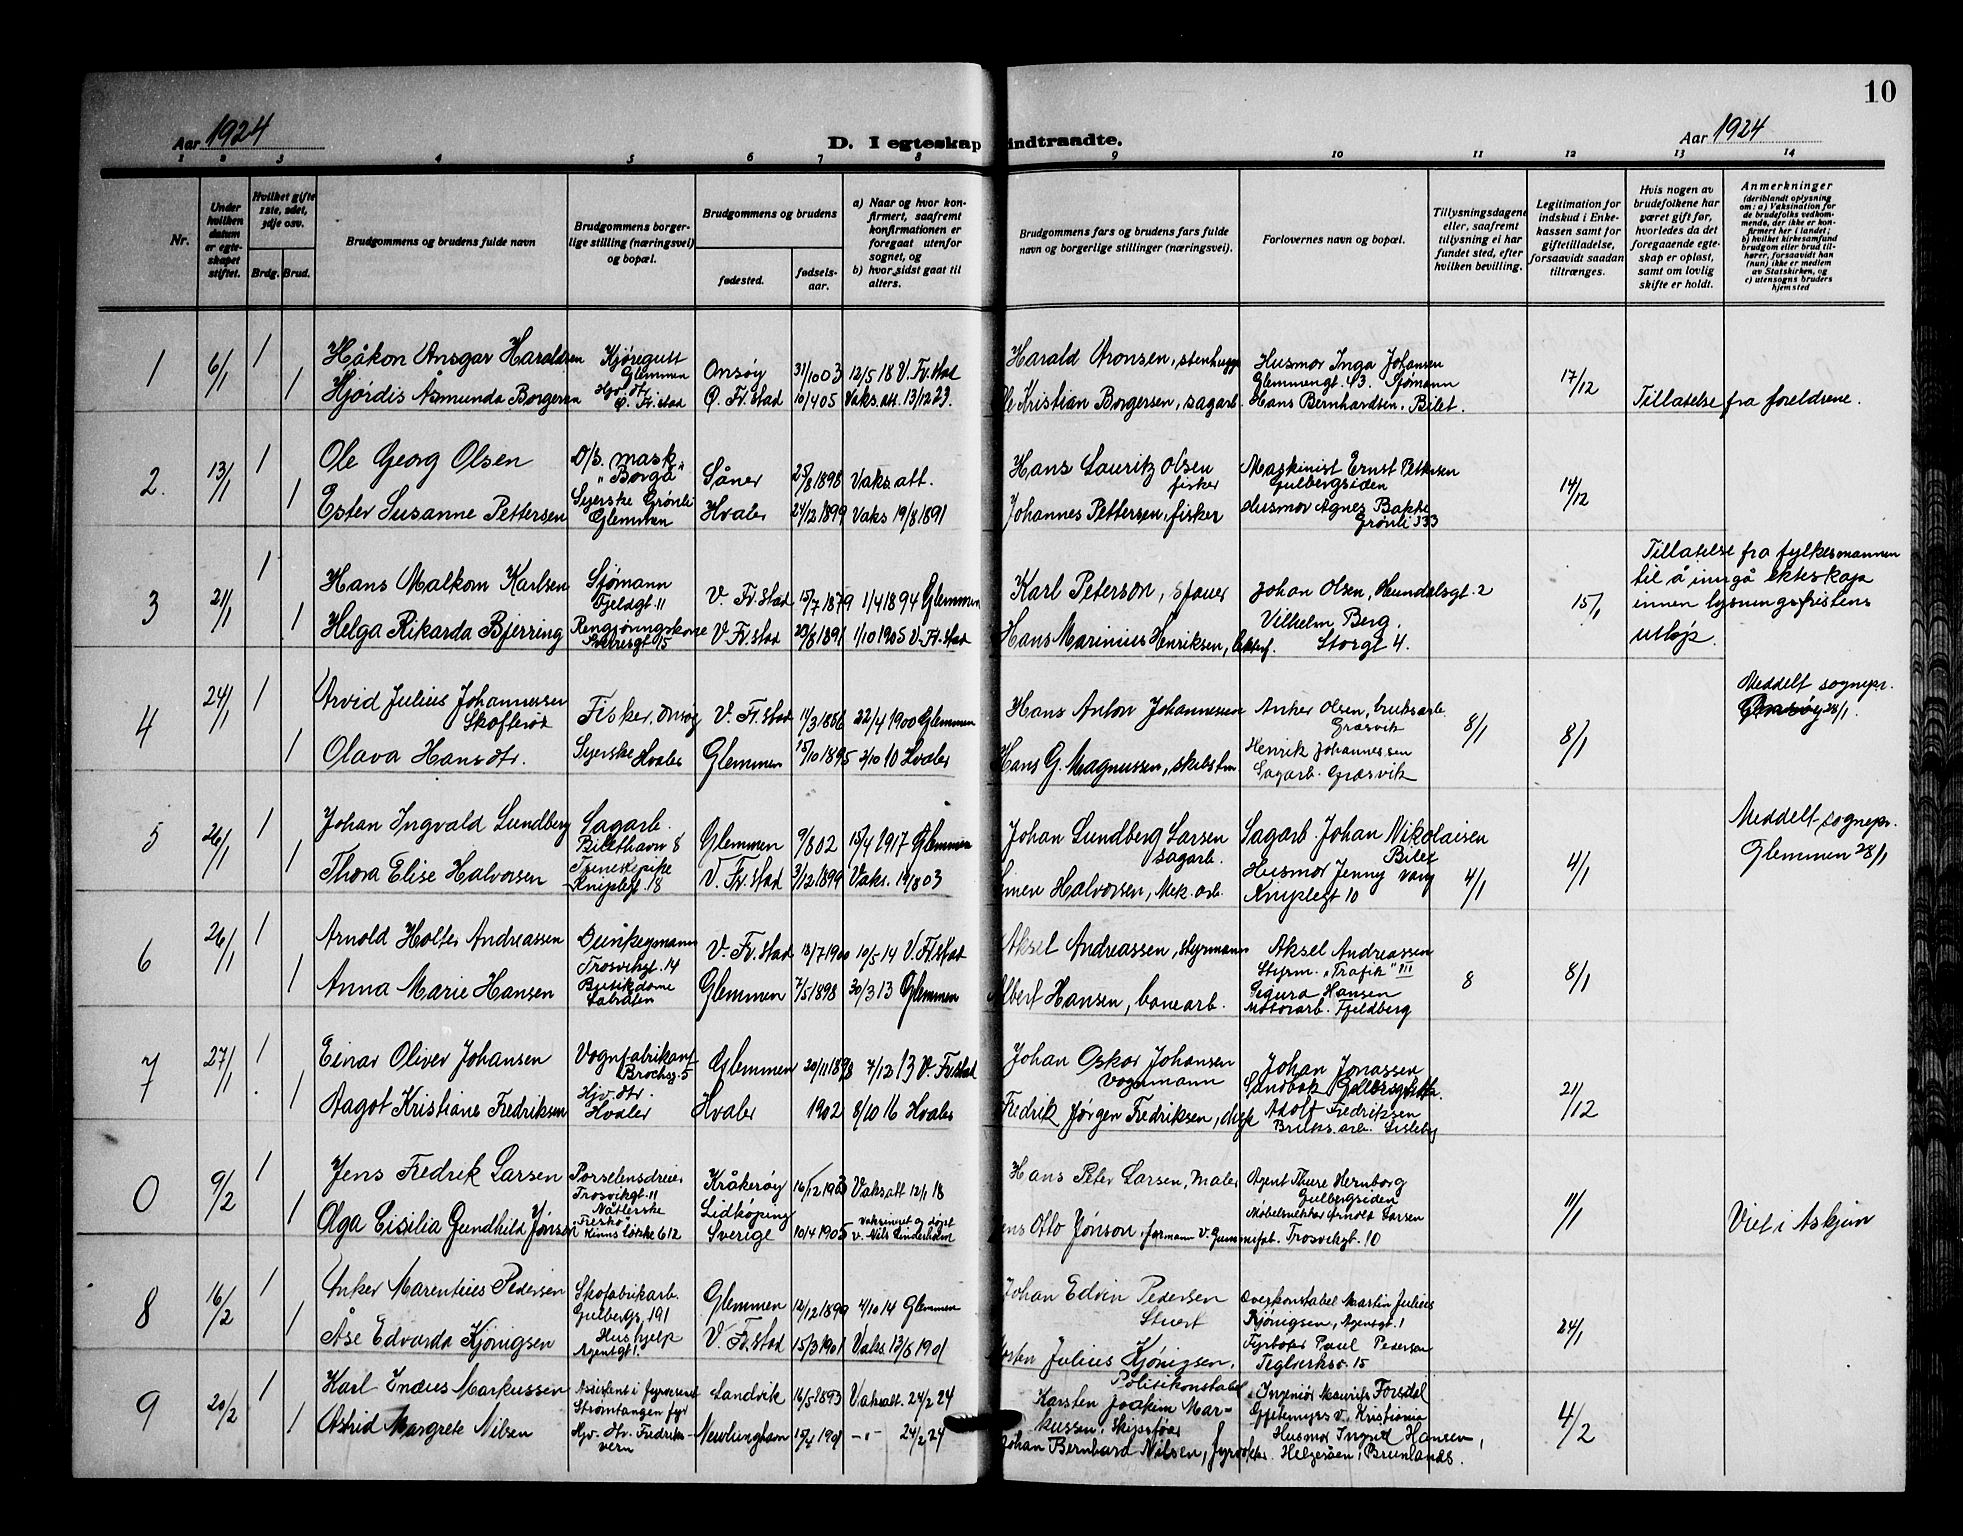 10
Aar 1924
D. I egteskap indtraadte.
Aar 1924
1 2 3 4 5 6 7 8 9 10 11 12 13 14
Nr.
Under hvilken datum er egteskapet stiftet.
Hvilket gifte 1ste, 2det, 3dje osv.
Brdg. Brud.
Brudgommens og brudens fulde navn
Brudgommens borgerlige stilling (næringsvei) og bopæl.
Brudgommens og brudens
fødested.
fødselsaar.
a) Naar og hvor konfirmert, saafremt konfirmationen er foregaat utenfor sognet, og
b) hvor sidst gaat til alters.
Brudgommens fars og brudens fars fulde navn og borgerlige stillinger (næringsvei).
Forlovernes navn og bopæl.
Tillysningsdagene eller, saafremt tillysning ei har fundet sted, efter hvilken bevilling.
Legitimation for indskud i Enkekassen samt for giftetilladelse, forsaavidt saadan tiltrænges.
Hvis nogen av brudefolkene har været gift før, hvorledes da det foregaaende egteskap er opløst, samt om lovlig skifte er holdt.
Anmerkninger
(deriblandt oplysning om: a) Vaksination for de brudefolks vedkommende, der ikke er konfirmert her i landet; b) hvilket kirkesamfund brudgom eller brud tilhører, forsaavidt han (hun) ikke er medlem av Statskirken, og c) utensogns bruders hjemsted
1 6/1 1 Håkon Ansgar Haraldsen Kjøregutt Glemmen Onsøy 31/10 03 12/5 18 V. Fr.stad Harald Aronsen, stenhugg. Husmor Inga Johansen Glemmengt. 43. Sjømann 17/12
1 Hjørdis Åsmunda Borgersen Hjv. dtr. Ø. Fr.stad Ø. Fr.stad 10/4 05 Vaks. att. 13/12 23. Ole Kristian Borgersen, sagarb. Hans Bernhardsen, Bilet. Tillatelse fra foreldrene.
2. 13/1 1 Ole Georg Olsen D/S. mask. "Borga" Såner 25/8 1898 Vaks. att. Hans Lauritz Olsen fisker Maskinist Ernst Pettersen Gulbergsiden 14/12
1 Ester Susanne Pettersen Syerske Grønli Glemmen Hvaler 24/12 1899 Vaks 19/8 1891 Johannes Pettersen, fisker Husmor Agnes Bakke Grønli 333
3 21/1 1 Hans Malkom Karlsen Sjømann Fjeldgt. 11 V. Fr.stad 15/7 1879 1/4 1894 Glemmen Karl Peterson, stauer Johan Olsen, Hundelsgt. 2 15/1 Tillatelse fra fylkesmannen til å inngå ekteskap innen lysningsfristens utløp.
1 Helga Rikarda Bjerring Rengjøringskone V. Fr.stad 23/8 1891 1/10 1905 V. Fr.stad Hans Marinius Henriksen, Vilhelm Berg. Storgt 4.
4 24/1 1 Arvid Julius Johannessen Skofterøs Fisker, Onsøy V. Fr.stad 14/3 1886 22/4 1900 Glemmen Hans Anton Johannessen Anker Olsen, bruksarb. Græsvik 8/1 8/1 Meddelt sognepr. 28/1.
1 Olava Hansdtr. Syerske Hvaler Glemmen 15/10 1895 2/10 10 Hvaler Hans G. Magnussen, Henrik Johannessen Sagarb. Græsvik
5 26/1 1 Johan Ingvald Lundberg Sagarb. Bilethavn 8 Glemmen 9/8 02 15/4 1917 Glemmen Johan Lundberg Larsen sagarb. Sagarb. Johan Nikolaisen Bilet 4/1 4/1 Meddelt sognepr. Glemmen 28/1
1 Thora Elise Halvorsen Tjenestepike Kniplegt 18 V. Fr.stad 3/12 1899 Vaks. 14/8 03 Simen Halvorsen, Mek. arb. Husmor Jenny Vang Kniplegt 10
6 26/1 1 Arnold Holter Andreassen Dunkeymann Trosvikgt. 14 V. Fr.stad 13/7 1900 10/5 14 V. Fr.stad Aksel Andreassen, styrmann Aksel Andreassen Styrm. "Trafik" III 8 8/1
1 Anna Marie Hansen Butikdame Labraten Glemmen 7/5 1898 30/3 13 Glemmen Albert Hansen, banearb. Sigurd Hansen Motorarb. Fjeldberg
7 27/1 1 Einar Oliver Johansen Vognfabrikant Brochsg. 5 Glemmen 20/11 1893 7/12 13 V. Fr.stad Johan Oskar Johansen Vognmann Johan Jonassen 21/12
1 Aagot Kristiane Fredriksen Hjv. dtr. Hvaler Hvaler 1902 8/10 16 Hvaler Fredrik Jørgen Fredriksen, Adolf Fredriksen Bruks. arb. Lisleby
0 9/2 1 Jens Fredrik Larsen Porselensdreier Trosvikgt. 11 Kråkerøy 16/12 1903 Vaks att 12/1 18 Hans Peter Larsen, Maler Agent Thure Hernborg Gulbergsiden 11/1
1 Olga Cisilia Gundhild Jønson Nåtlerske "Fresko" Kinnsløkke 612 Lidköping Sverige 10/4 1905 Vaksinert og døpt v. Nils Linderholm Jens Otto Jønson, formann v. Gummifab. Møbelsnekker Arnold Larsen Trosvikgt. 10 Viet i Askjum
8 16/2 1 Anker Marentius Pedersen Skofabrikarb. Gulbergs. 191 Glemmen 12/12 1899 4/10 14 Glemmen Johan Edvin Pedersen Stuert Overkonstabel Martin Julius Kjønigsen, Agentgt. 1 24/1
1 Åse Edvarda Kjønigsen Hushjelp Agentgt 1. V. Fr.stad 15/3 1901 Vaks 13/6 1901 Morten Julius Kjønigsen, Politikonstabel Fyrbøter Paul Pedersen Teglverksv. 15
9 20/2 1 Karl Enæus Markussen Assistent i fyrvesenet Strømtangen fyr Landvik 16/5 1893 Vaksatt. 24/2 24 Karsten Joakim Markussen, Skipsfører Ingeniør Mauritz Forsdal Gjetemyrs v. Kristiania 4/2
1 Astrid Margrete Nilsen Hjv. dtr. Fredriksvern 15/4 1901 -"- 24/2 24 Johan Bernhard Nilsen, Husmor Ingrid Hansen, Helgeråen i Brunlanes.